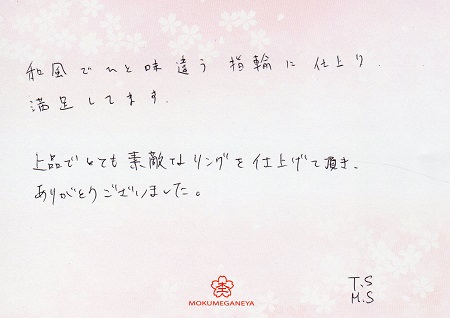 和風でひと味違う指輪に仕上り、
満足してます。
上品でとても素敵なリングを仕上げて頂き、
ありがとうございました。
T.S
M.S
MOKUMEGANEYA